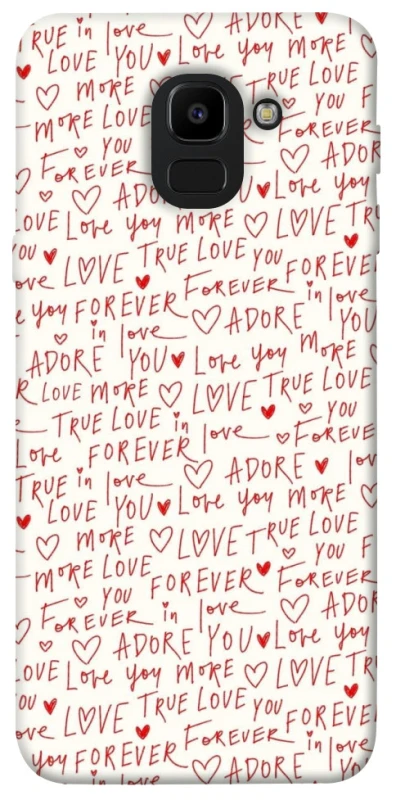 TRUE in love ADORE
LOVE YOU Love you MORE
MORE TRUE LOVE
MORE LOVE YOU F
YOU FOREVER
FOREVER ADOR
ADO U Love you
LOVE Love you MORE LOVE TRU
YOU LOVE TRUE LOVE YOU
ove FOREVER FOREVE
e you FOREVER in love
in love ADORE YOU
ADORE YOU Love you MORE
R LOVE MORE LOVE TRUE LOVE
TRUE LOVE in love YOU
Love FOREVER FOREVE
TRUE in love ADORE lov
LOVE YOU Love you MORE
MORE LOVE TRUE LOVE
MORE LOVE YOU F
YOU FOREVER FOREVER
FOREVER in love ADOR
ADORE YOU Love you
LOVE Love you MORE LOVE TR
YOU LOVE TRUE LOVE YOU
ove FOREVER FOREVER
you FOREVER in love
in love ADORE YOU